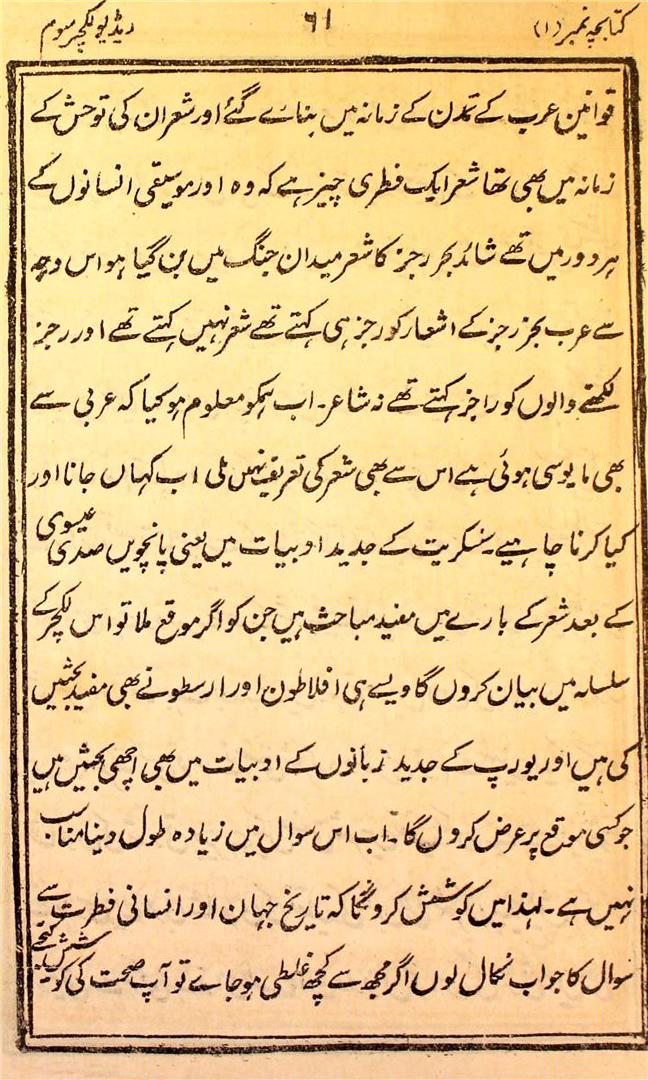 کتابچہ نمبر (۱)
۶۱
ریڈیو لکچر سوم
قوانین عرب کے تمدن کے زمانہ میں بنائے گئے اور شعر ان کی توحش کے
زمانہ میں بھی تھا شعر ایک فطری چیز ہے کہ وہ اور موسیقی انسانوں کے
ہر دور میں تھے شائد بحر رجز کا شعر میدان جنگ میں بن گیا ہو اس وجہ
سے عرب بحر رجز کے اشعار کو رجز ہی کہتے تھے شعر نہیں کہتے تھے اور رجز
لکھنے والوں کو راجز کہتے تھے نہ شاعر۔ اب ہمکو معلوم ہو گیا کہ عربی سے
بھی مایوسی ہوئی ہے اس سے بھی شعر کی تعریف نہیں ملی اب کہاں جانا اور
کیا کرنا چاہیے۔ سنکریت کے جدید ادبیات میں یعنی پانچویں صدی عیسوی
کے بعد شعر کے بارے میں مفید مباحث ہیں جن کو اگر موقع ملا تو اس لکچر کے
سلسلہ میں بیان کروں گا ویسے ہی افلاطون اور ارسطو نے بھی مفید بحثیں
کی ہیں اور یورپ کے جدید زبانوں کے ادبیات میں بھی اچھی بحثیں ہیں
جو کسی موقع پر عرض کروں گا۔ اب اس سوال میں زیادہ طول دینا مناسب
نہیں ہے۔ لہذا میں کوشش کرونگا کہ تاریخ جہان اور انسانی فطرت سے
سوال کا جواب نکال لوں اگر مجھ سے کچھ غلطی ہو جاے تو آپ صحت کی کوشش کیجیے